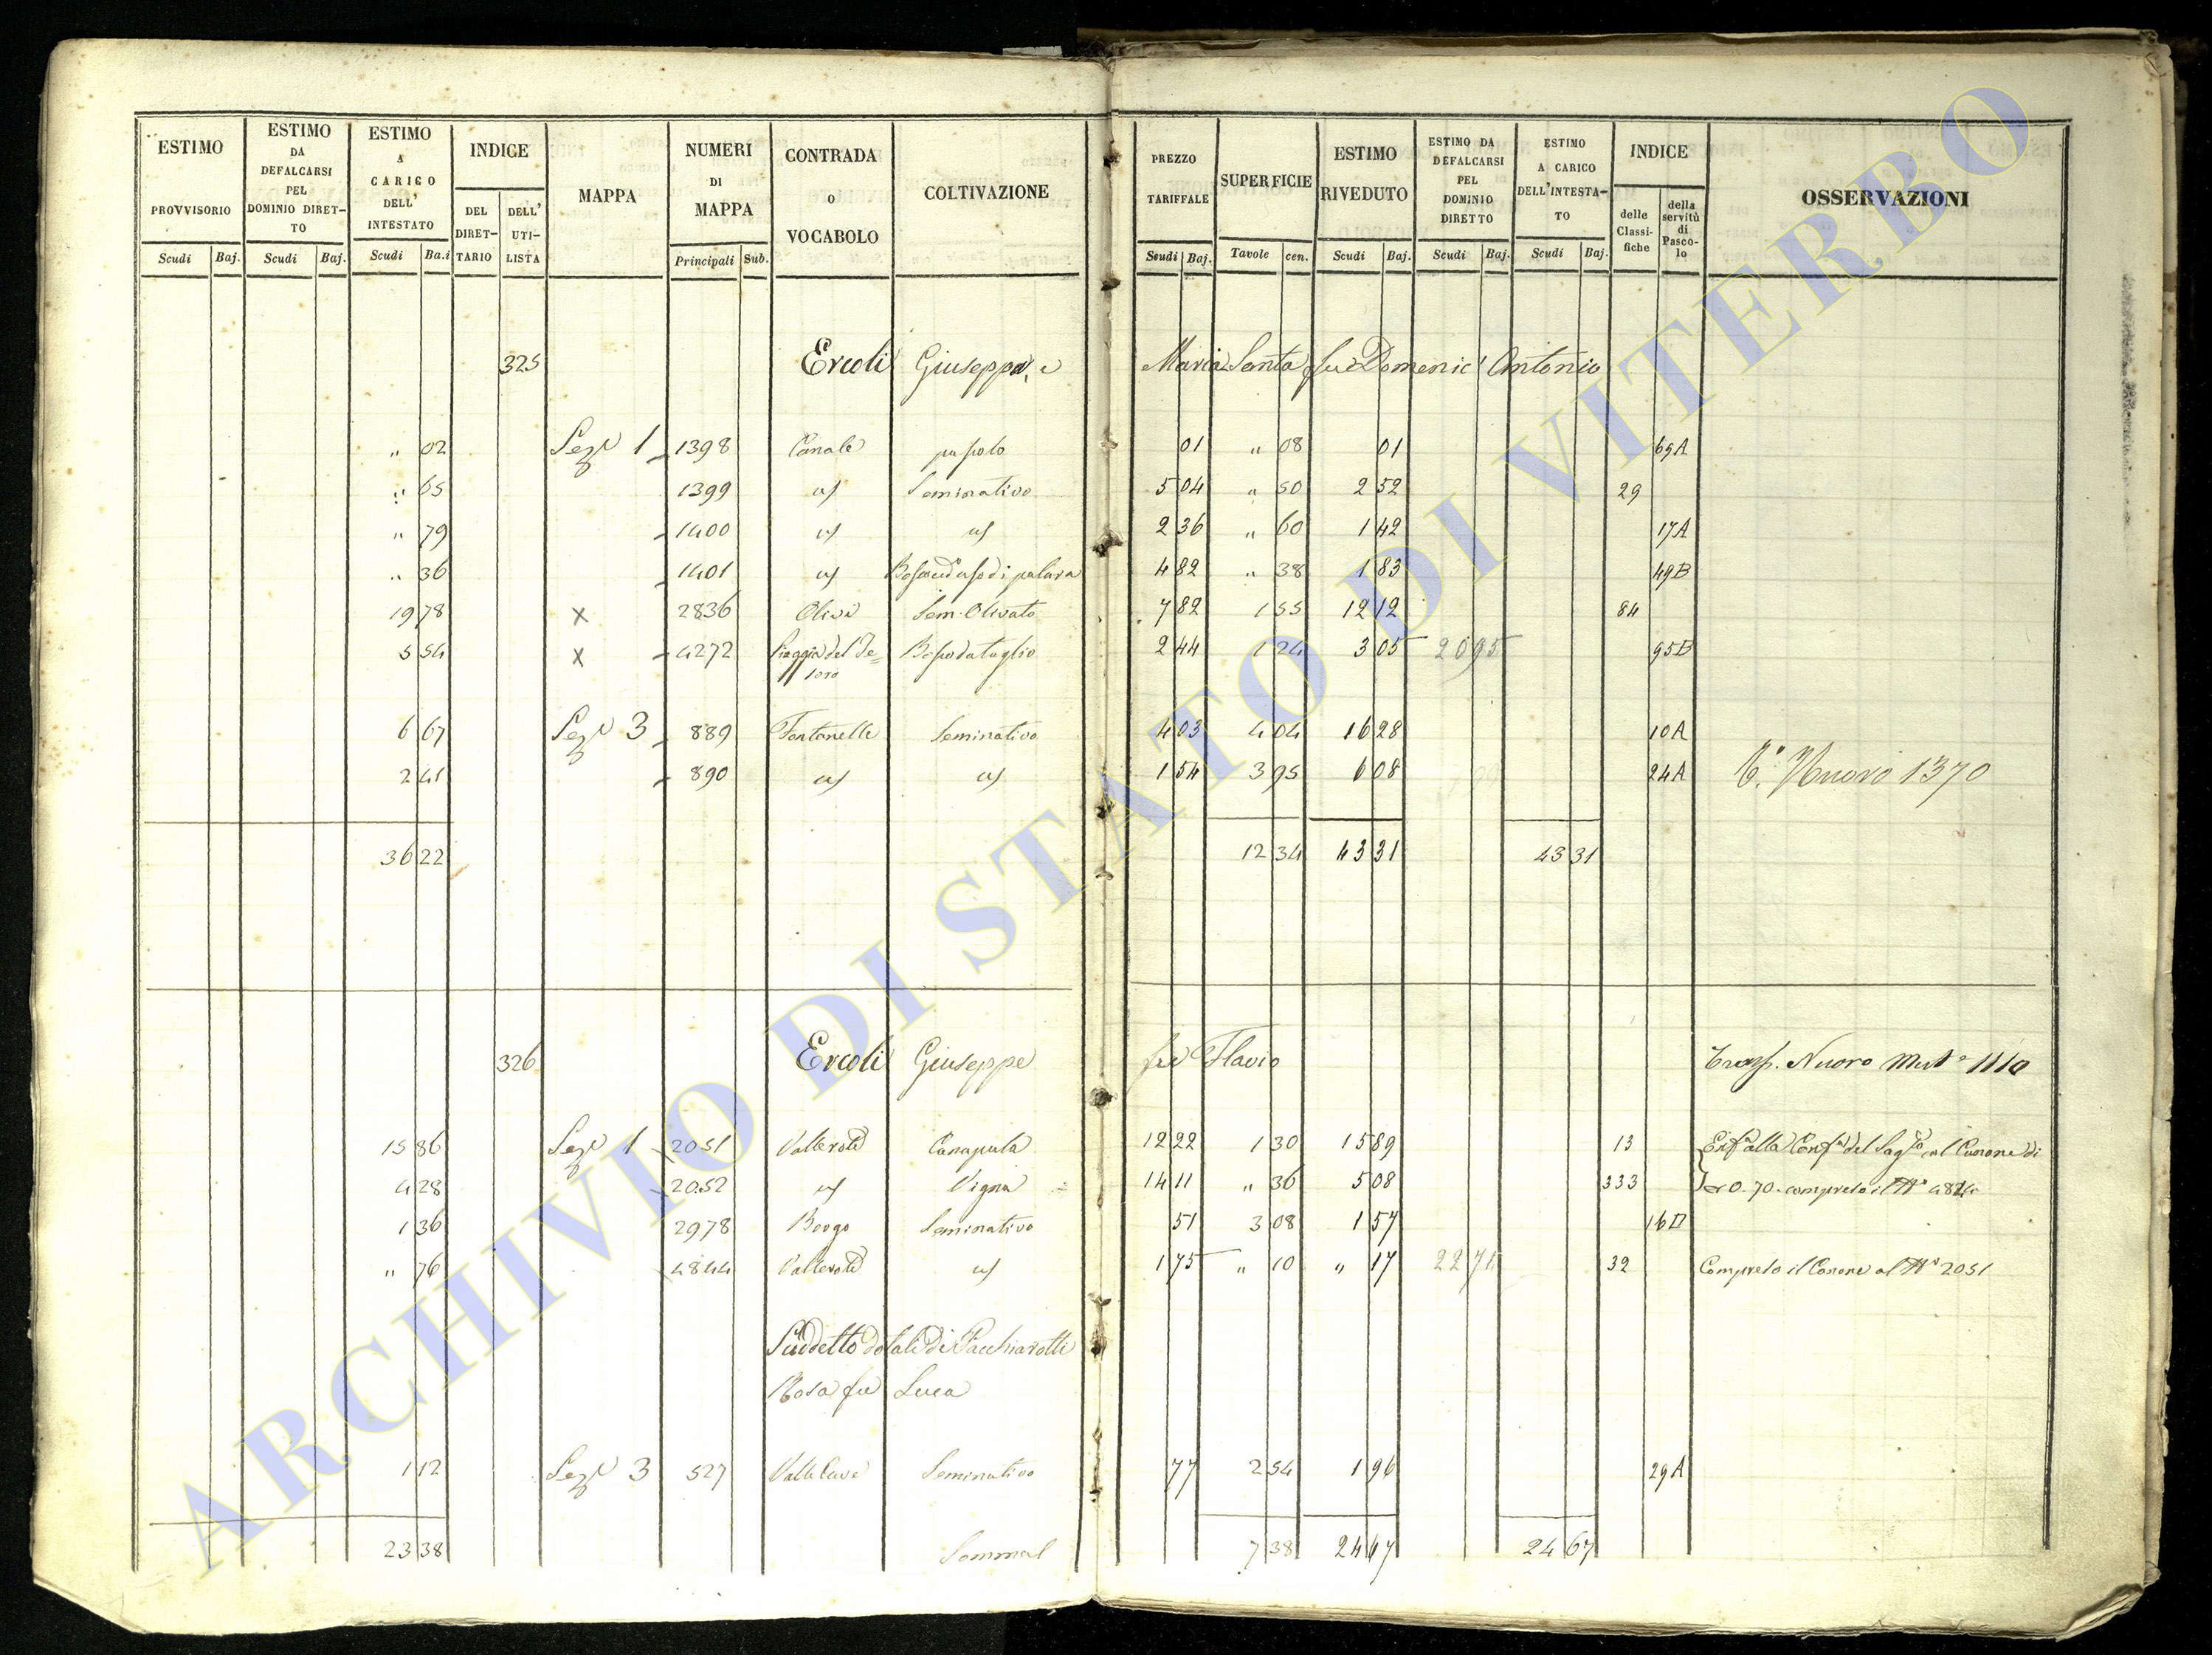 ESTIMO PROVVISORIO Scudi Baj.
ESTIMO DA DEFALCARSI PEL DOMINIO DIRETTO Scudi Baj.
ESTIMO A CARICO DELL' INTESTATO Scudi Ba.i
INDICE DEL DIRETTARIO DELL' UTILISTA
MAPPA
NUMERI DI MAPPA Principali Sub.
CONTRADA O VOCABOLO
COLTIVAZIONE
PREZZO TARIFFALE Scudi Baj.
SUPERFICIE Tavole cen.
ESTIMO RIVEDUTO Scudi Baj.
ESTIMO DA DEFALCARSI PEL DOMINIO DIRETTO Scudi Baj.
ESTIMO A CARICO DELL'INTESTATO Scudi Baj.
INDICE delle Classifiche della servitù di Pascolo
OSSERVAZIONI
325 Ercoli Giuseppa, e Maria Santa fu Domenic' Antonio
" 02 Sez.e 1 1398 Canale pascolo 01 " 08 01 69A
" 65 1399 id Seminativo 5 04 " 50 2 52 29
" 79 1400 id id 2 36 " 60 1 42 17A
" 36 1401 id 4 82 " 38 1 83 49B
19 78 x 2836 Olive Sem. Olivato 7 82 1 55 12 12 84
5 54 x 4272 Piaggia del Te= soro Bosco da taglio 2 44 1 24 3 05 20 95 95B
6 67 Sez.e 3 889 Fontanelle Seminativo 4 03 4 04 16 28 10A
2 41 890 id id 1 54 3 95 6 08 24A
Nuovo 1370
36 22 12 34 43 31 43 31
326 Ercoli Giuseppe fu Flavio Trasp. Nuovo Mut.e 1110
15 86 Sez.e 1 2051 Vallerote Canapula 12 22 1 30 15 89 13 Enf.a alla Conf.a del Sag.to col Canone di
4 28 2052 id Vigna 14 11 " 36 5 08 333 0.70. compreso il N° 4844
1 36 2978 Borgo Seminativo 51 3 08 1 57 16D
" 76 4844 Vallerote id 1 75 " 10 " 17 22 71 32 Compreso il Canone al N° 2051
Suddetto dotale di Pacchiarotti
Rosa fu Luca
1 12 Sez.e 3 527 Valle Cave Seminativo 77 2 54 1 96 29A
23 38 Somma 7 38 24 67 24 67
ARCHIVIO DI STATO DI VITERBO